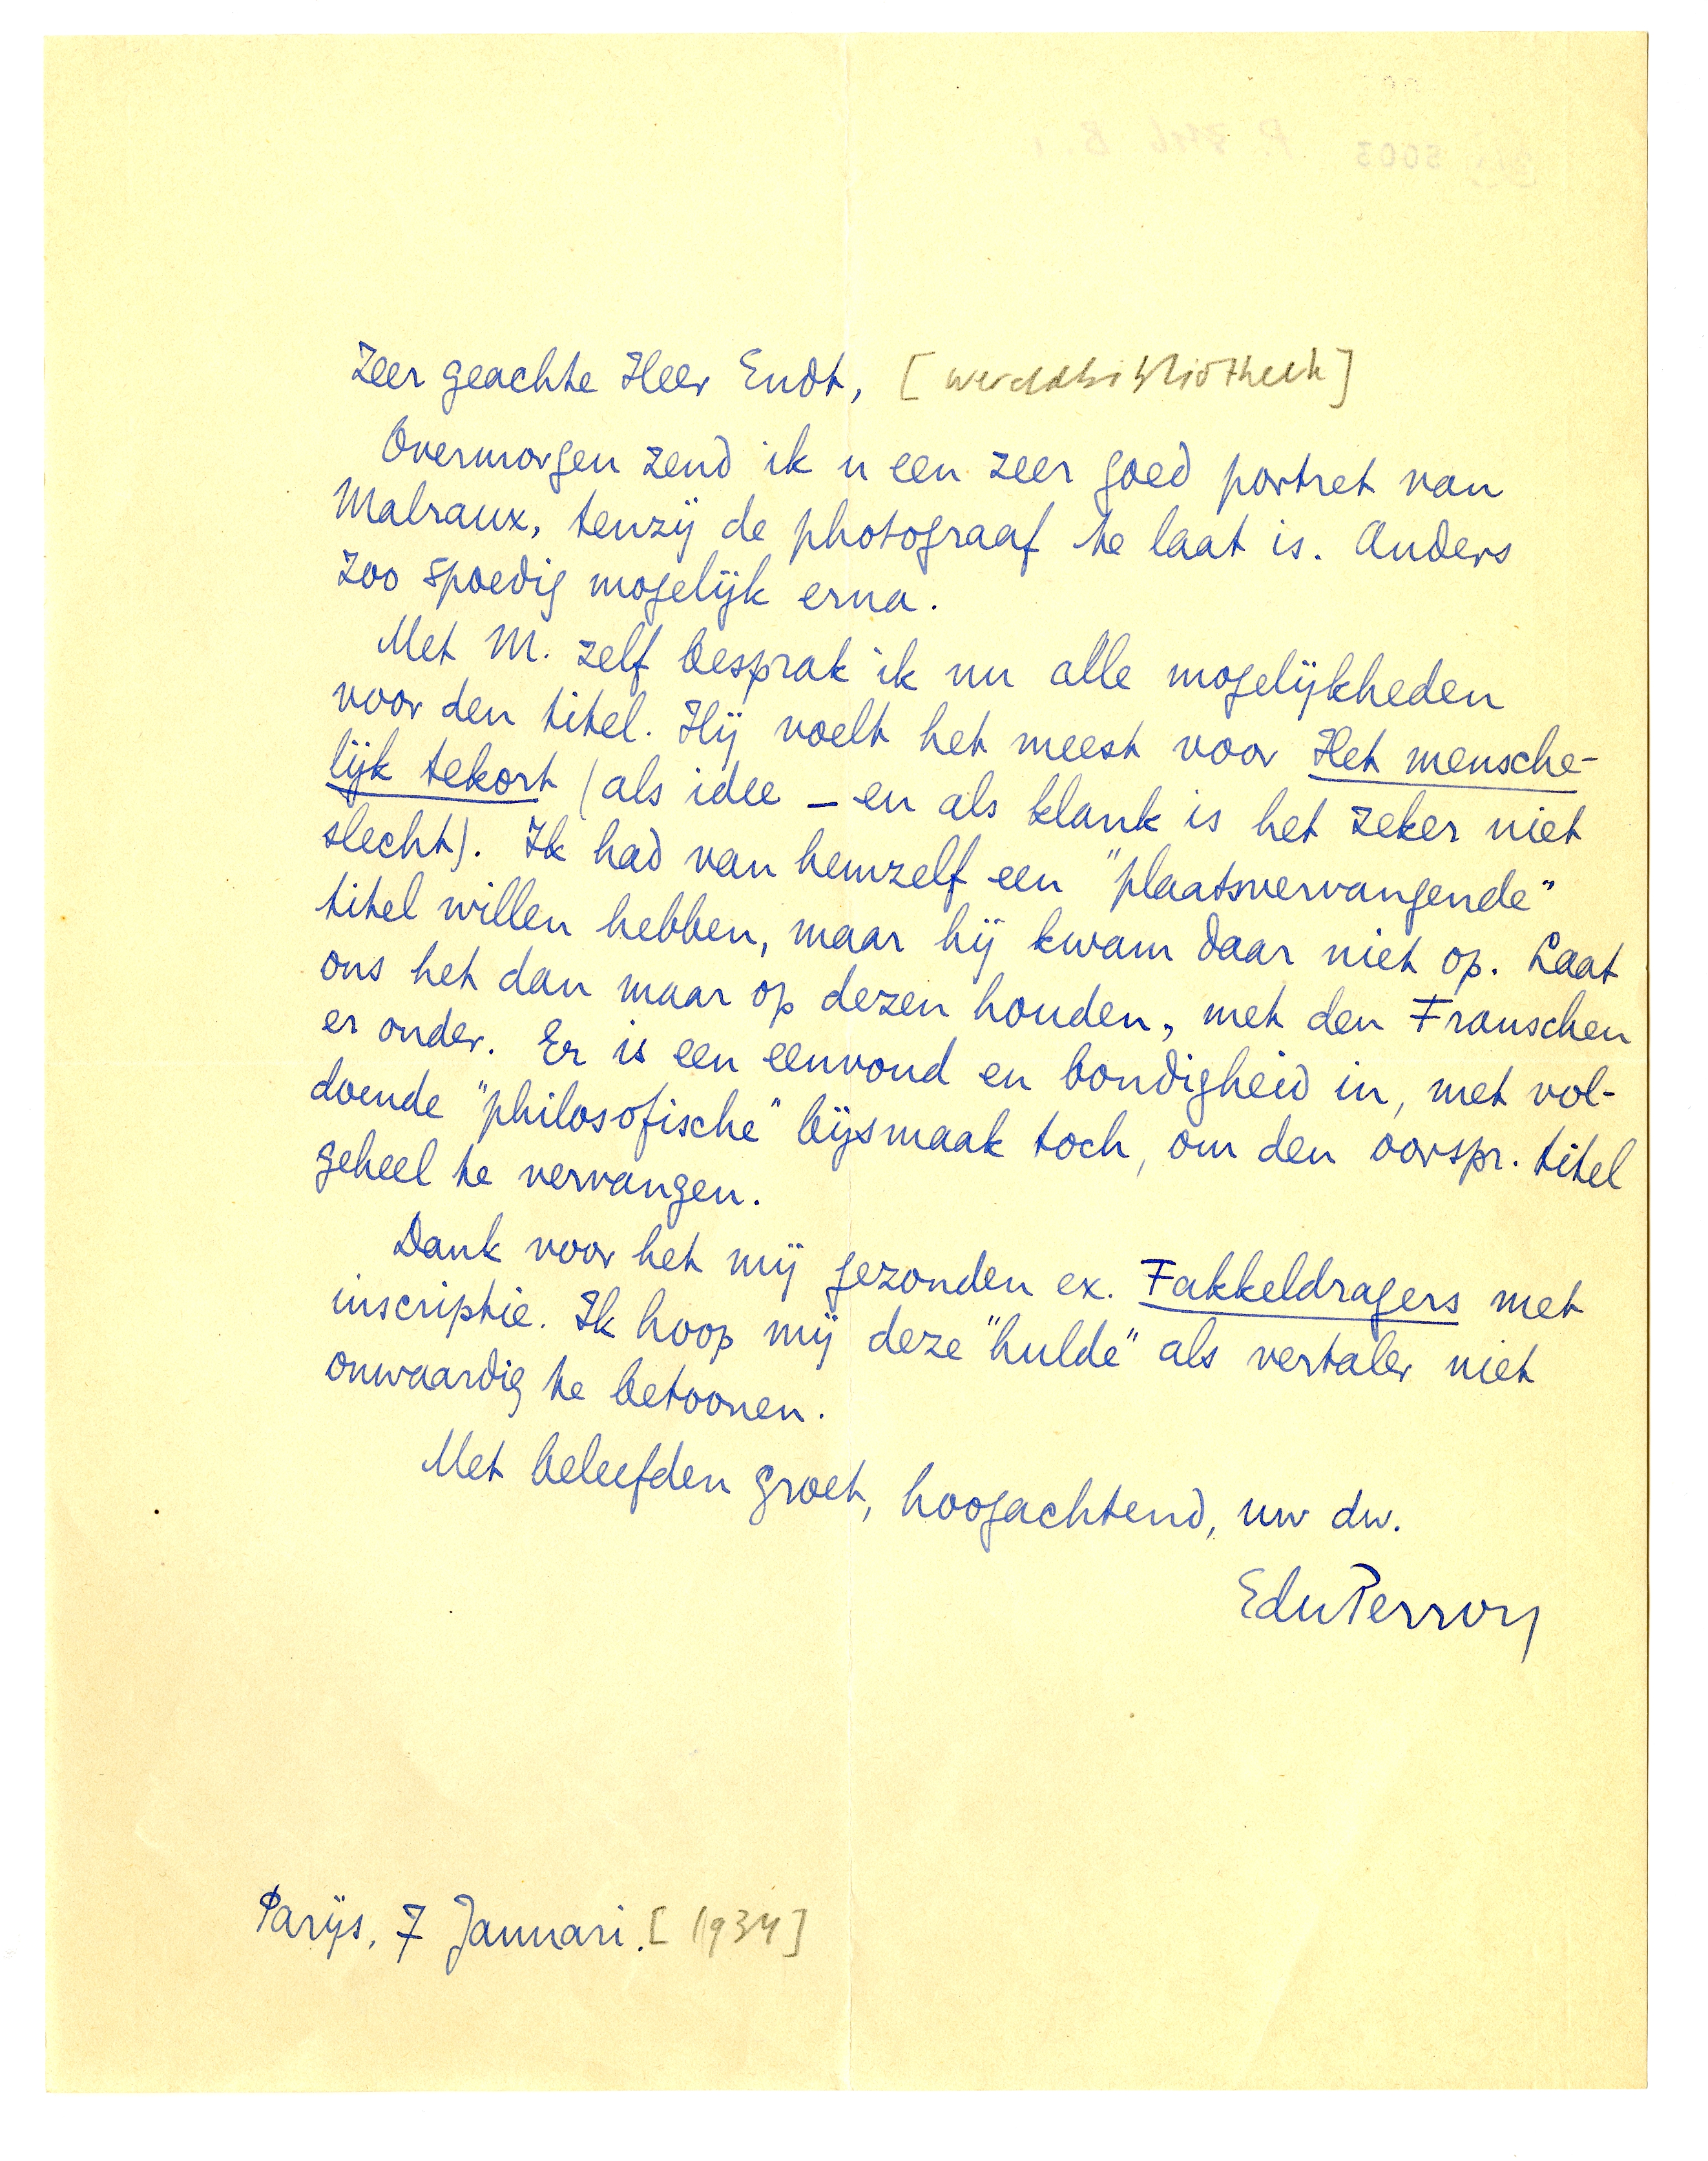 Zeer geachte Heer Endt, [wereldbibliotheek]
Overmorgen zend ik u een zeer goed portret van
Malraux, tenzij de photograaf te laat is. Anders
zoo spoedig mogelijk erna.
Met M. zelf besprak ik nu alle mogelijkheden
voor den titel. Hij voelt het meest voor Het mensche-
lijk tekort (als idee – en als klank is het zeker niet
slecht). Ik had van hemzelf een "plaatsvervangende"
titel willen hebben, maar hij kwam daar niet op. Laat
ons het dan maar op dezen houden, met den Franschen
er onder. Er is een eenvoud en bondigheid in, met vol-
doende "philosofische" bijsmaak toch, om den oorspr. titel
geheel te vervangen.
Dank voor het mij gezonden ex. Fakkeldragers met
inscriptie. Ik hoop mij deze "hulde" als vertaler niet
onwaardig te betoonen.
Met beleefden groet, hoogachtend, uw dw.
EduPerron
Parijs, 7 Januari. [1934]